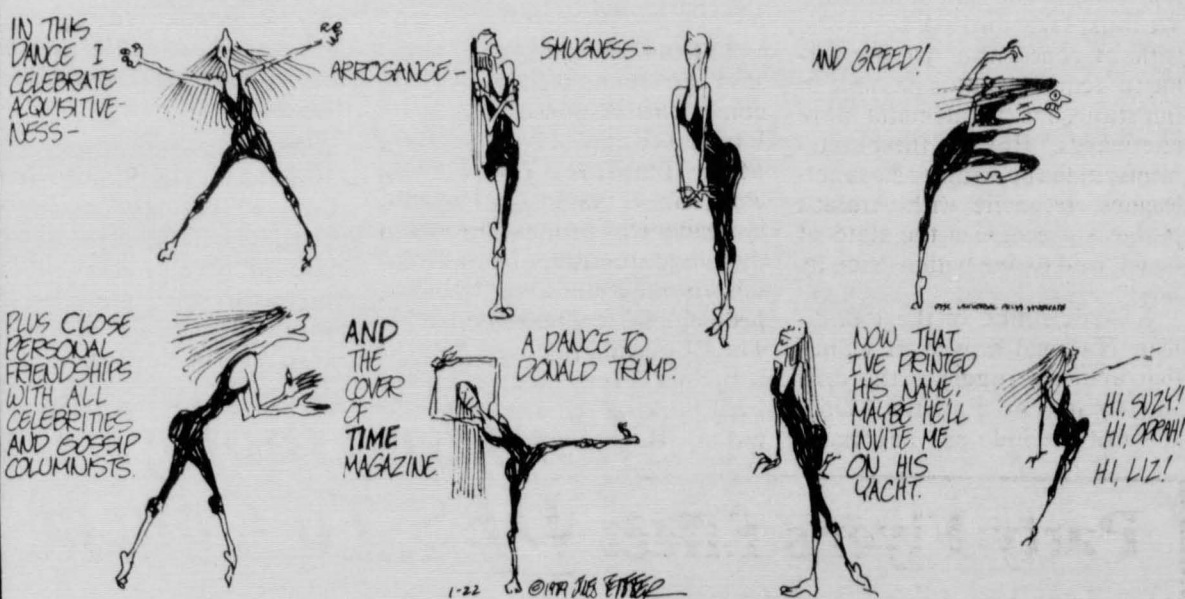 IN THIS
DANCE I
CELEBRATE
ACQUISITIVE-
NESS-
ARROGANCE-
SMUGNESS-
AND GREED!
PLUS CLOSE
PERSONAL
FRIENDSHIPS
WITH ALL
CELEBRITIES
AND GOSSIP
COLUMNISTS.
AND
THE
COVER
OF
TIME
MAGAZINE
A DANCE TO
DONALD TRUMP.
NOW THAT
I'VE PRINTED
HIS NAME,
MAYBE HE'LL
INVITE ME
ON HIS
YACHT.
HI, SUZY!
HI, OPRAH!
HI, LIZ!
1-22 © 1989 JULES FEIFFER